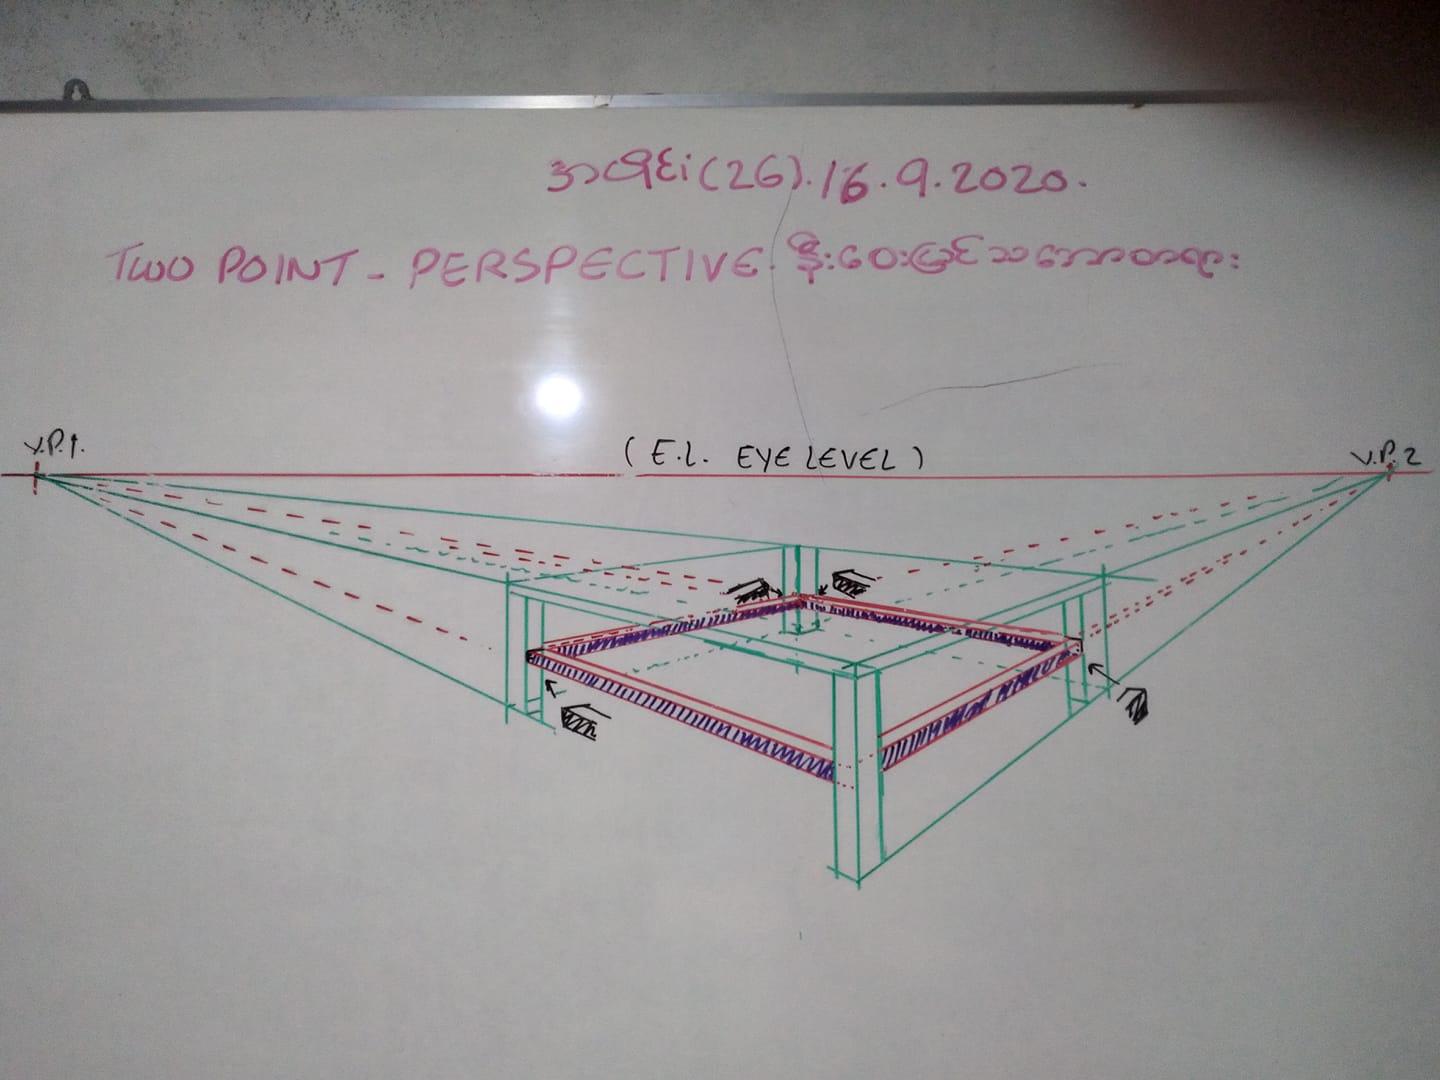 အပိုင်း(26).16.9.2020.
TWO POINT - PERSPECTIVE. နီးဝေးမြင်သဘောတရား
V.P.1. (E.L. EYE LEVEL) V.P.2